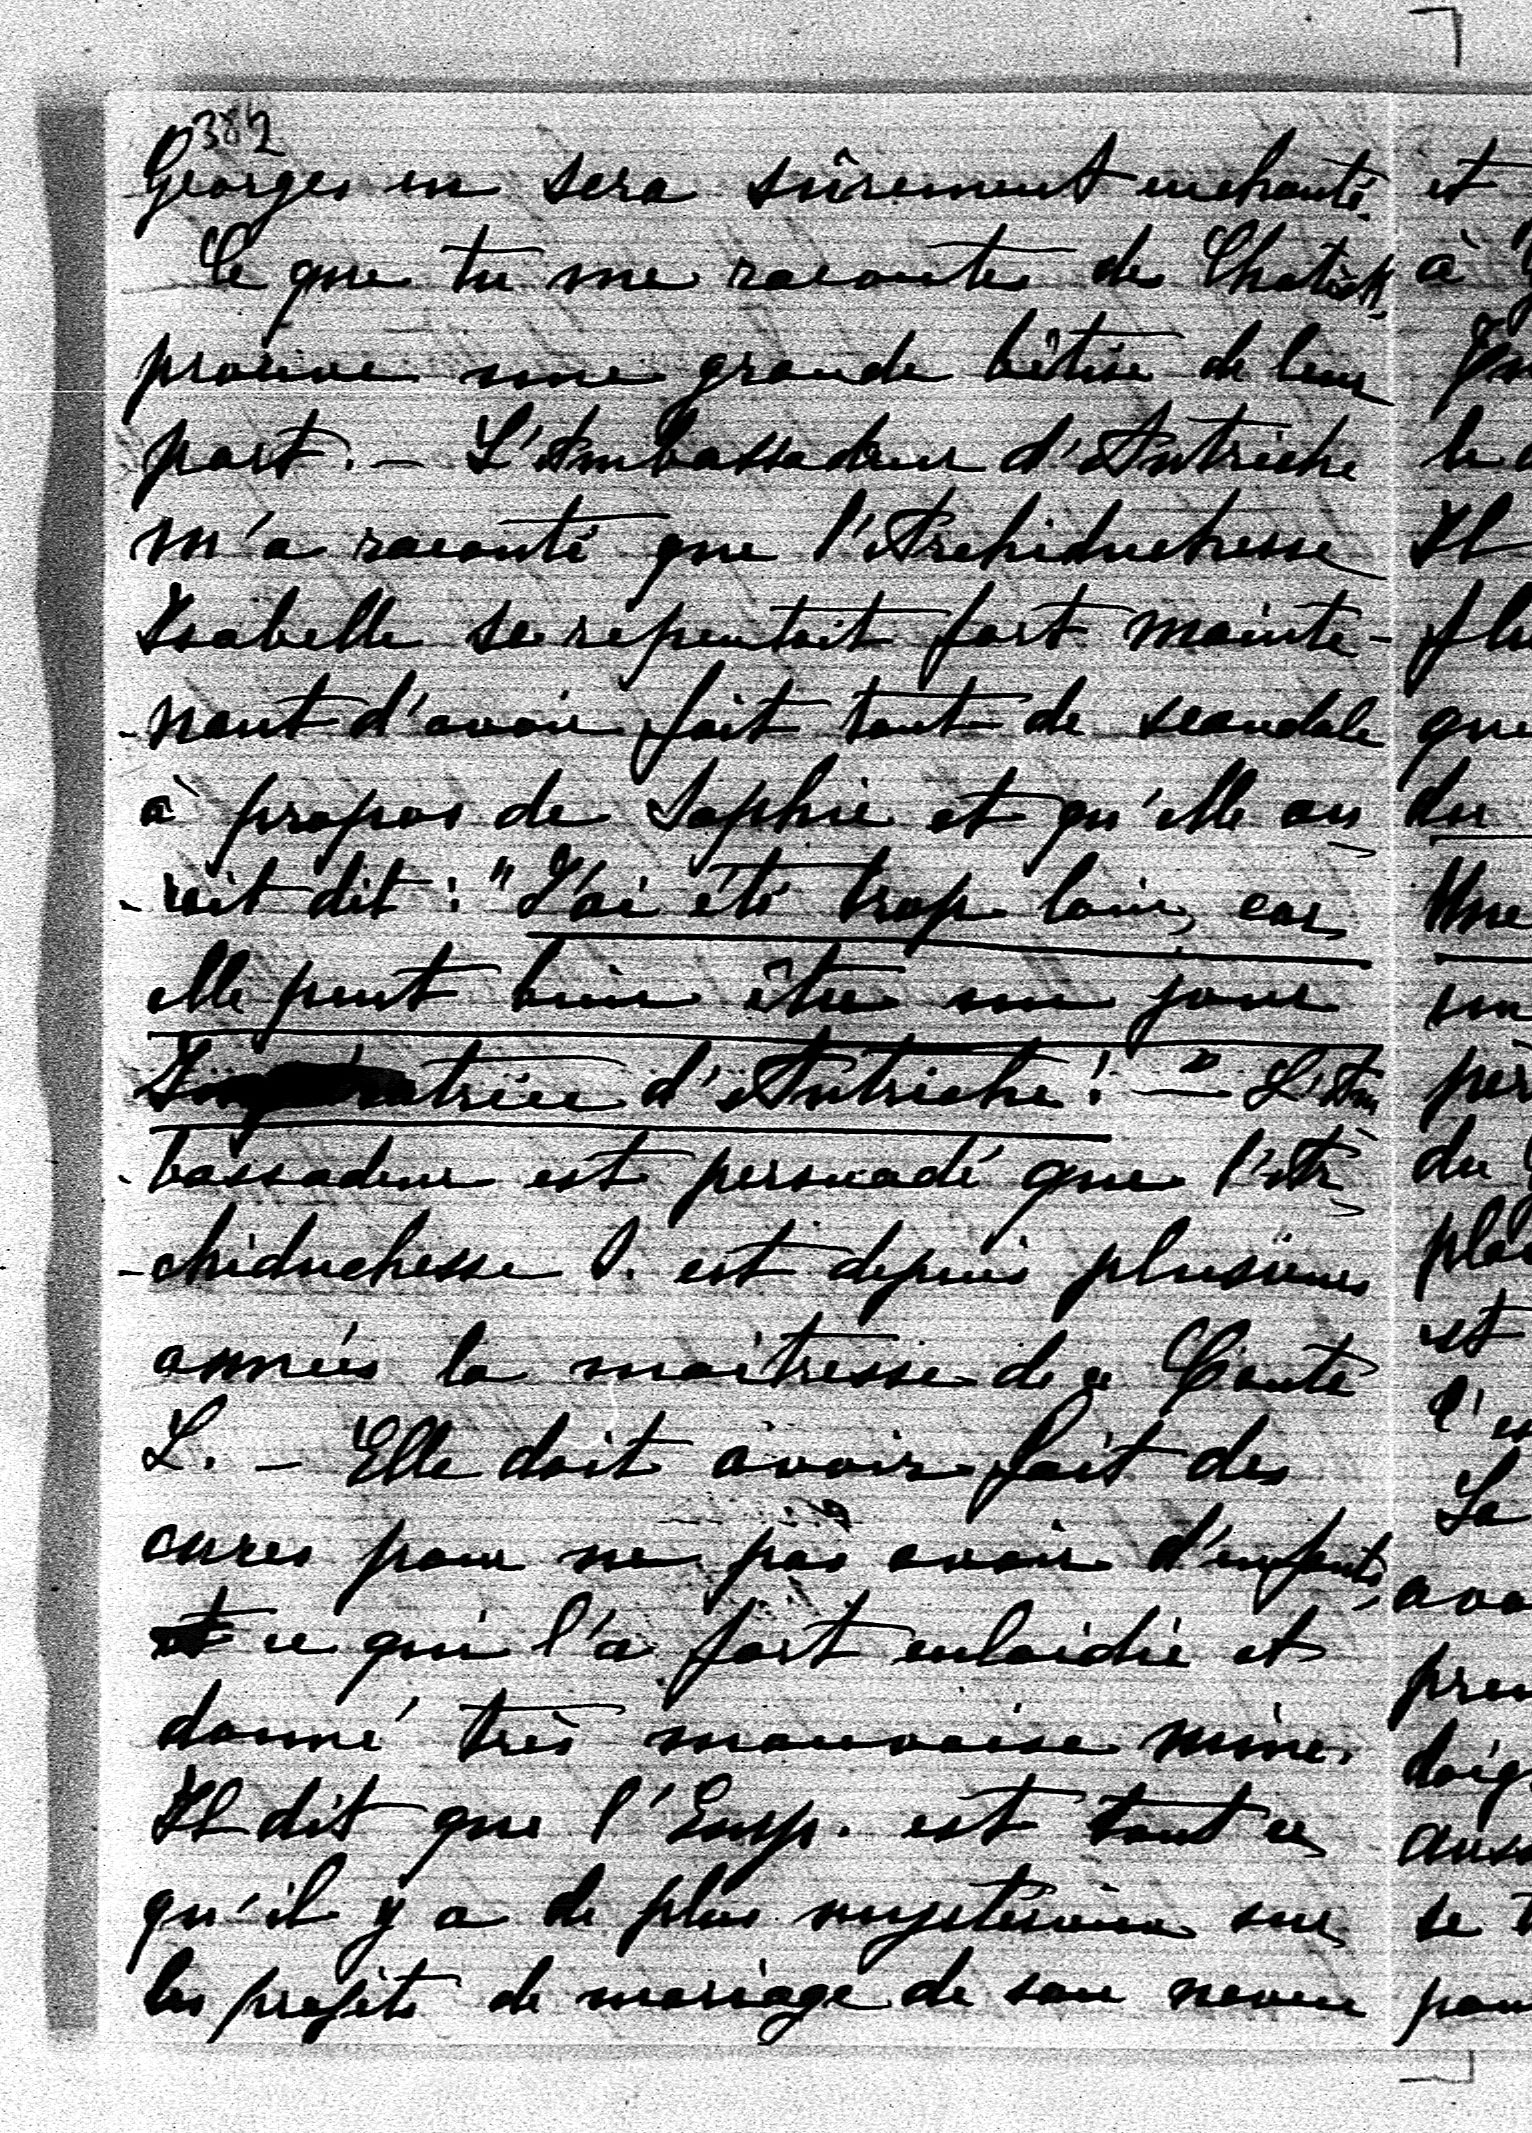 382
Georges en sera sûrement enchanté.
Ce que tu me racontes de
prouve une grande bêtise de leur
part. — L'Ambassadeur d'Autriche
m'a raconté que l'Archiduchesse
Isabelle se repentait fort mainte-
-nant d'avoir fait tant de scandale
à propos de Sophie et qu'elle au
-rait dit : "J'ai été trop loin, car
elle peut bien être un jour
Impératrice d'Autriche! —" L'Am
-bassadeur est persuadé que l'Ar
-chiduchesse I. est depuis plusieurs
années la maîtresse de ce Comte
L. — Elle doit avoir fait des
cures pour ne pas avoir d'enfants,
et ce qui l'a fort enlaidie et
donné très mauvaise mine.
Il dit que l'Emp. est tout ce
qu'il y a de plus mystérieux sur
les projets de mariage de son neveu
et
à
le
Il
que
du
Une
du
et
l'
La
se